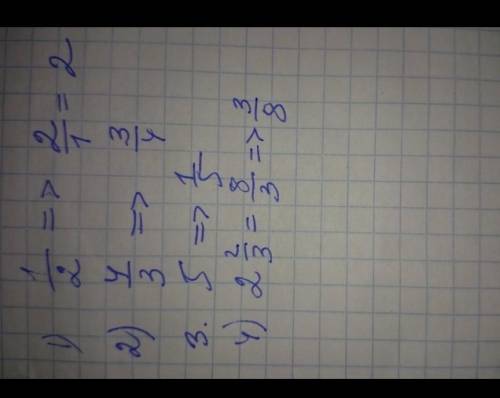 1) 1/2 => 2/1 = 2
2) 4/3 => 3/4
3. 5 => 1/5
4) 2 2/3 = 8/3 => 3/8